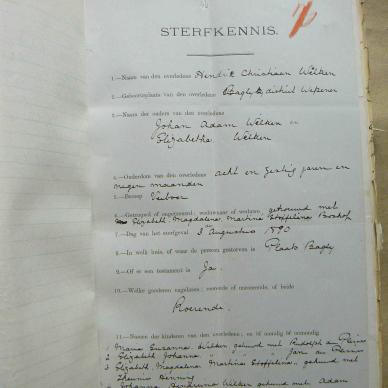 STERFKENNIS.
1.—Naam van den overledene Hendrik Christiaan Welken
2.—Geboorteplaats van den overledene district Wepener
3.—Namen der ouders van den overledene
Johan Adam Welken en
Elizabetha Welken
4.—Ouderdom van den overledene acht en jaren en
negen maanden
5.—Beroep Veeboer
6.—Getrouwd of ongetrouwd, weduwnaar of weduwe, getrouwd met
Elizabeth Magdalena Martina Stoffelina Boshof
7.—Dag van het sterfgeval 3en Augustus 1890
8.—In welk huis, of waar de persoon gestorven is Plaats
9.—Of er een testament is Ja.
10.—Welke goederen nagelaten; roerende of onroerende, of beide
Roerende.
11.—Namen der kinderen van den overledene, en of mondig of onmondig
1 Maria Susanna Welken gehuwd met Rudolph
2 Elizabeth Johanna " " " Jan
3 Elizabeth Magdalena Martina Stoffelina gehuwd met
Theunis
4 Johanna Hendrina Welken gehuwd met Adam